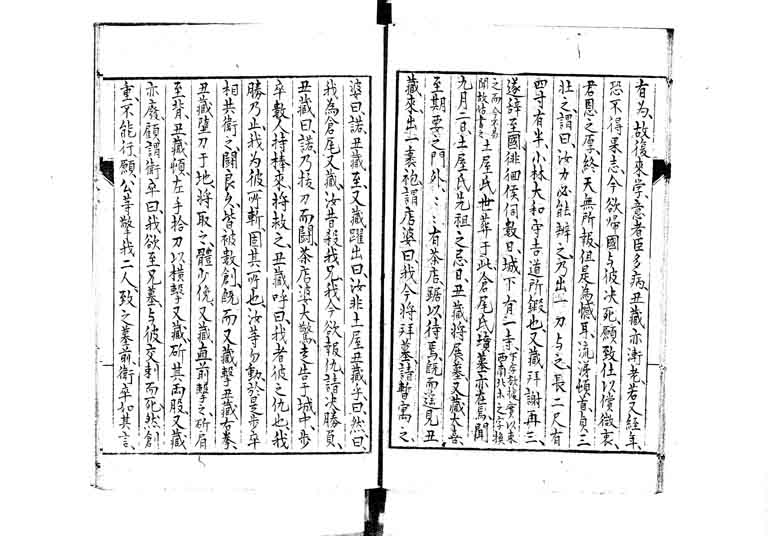 有為、故復來学、意者臣多病、丑蔵亦漸老、若又経年、
恐不得果志、今欲帰國与彼决死、願致仕以償微衷、
君恩之厚、終天無所報、但是為憾耳、流涕頓首、貞三
壮之、謂曰、汝力必能辨之、乃出一刀与之、長二尺有
四寸有半、小林大和守吉道所鍛也、又蔵拝謝再三、
遂辞至國、徘徊侯伺数日、城下有一寺、
土屋氏世葬于此、倉尾氏墳墓亦在焉、聞
九月二日、土屋氏先祖之忌日、丑蔵将展墓、又蔵大喜、
至期要之門外、門外有茶店、踞以待焉、既而遥見丑
蔵來、出一裹袍、謂店婆曰、我今将拝墓、請暫寓之、
婆曰、諾、丑蔵至、又蔵躍出曰、汝非土屋丑蔵乎、曰、然、曰、
我為倉尾又蔵、汝昔殺我兄、我今欲報仇、請决勝負、
丑蔵曰、諾、乃抜刀而闘、茶店婆大驚、走告于城中、歩
卒数人持棒來、将救之、丑蔵呼曰、我者彼之仇也、我
勝乃止、我為彼所斬、固其所也、汝等勿動、於是歩卒
相共衛之、闘良久、皆被数創、既而又蔵撃丑蔵右拳、
丑蔵墮刀于地、将取之、體少俛、又蔵直前撃之、斫肩
至背、丑蔵頓左手拾刀、以横撃又蔵、斫其両股、又蔵
亦廃、顧謂衛卒曰、我欲至兄墓、与彼交刺而死、然創
重不能行、願公等擎我二人、致之墓前、衛卒如其言、